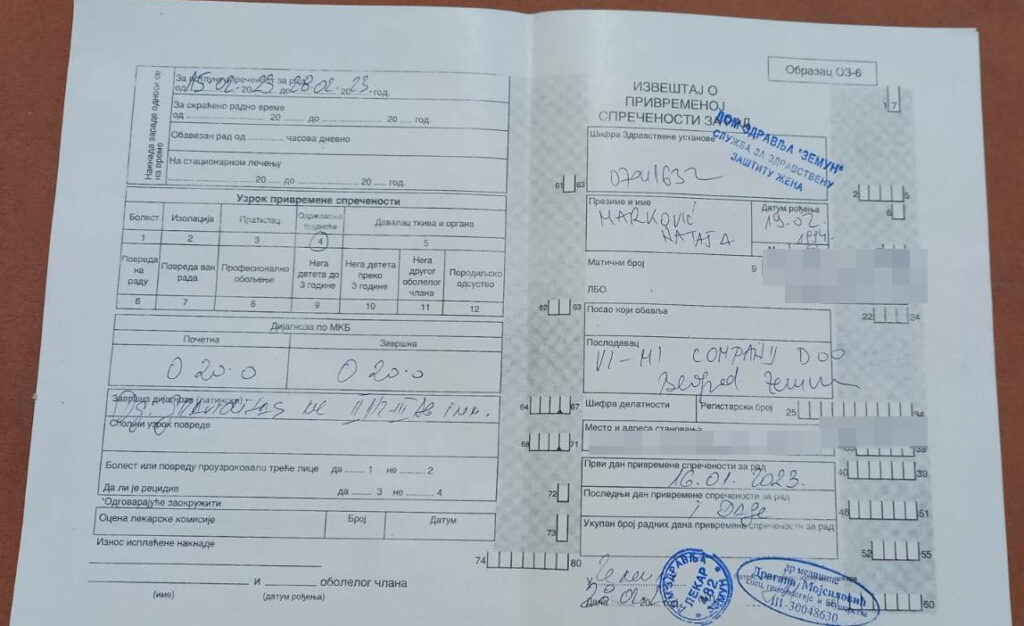 Накнада зараде односи се на време
За потпуну спреченост за рад
од 15.02. 2023 до 28.02. 2023. год.
За скраћено радно време
од 20 до 20 год.
Обавезан рад од часова дневно
На стационарном лечењу
20 до 20 год.
Узрок привремене спречености
Болест Изолација Пратилац Одржавање трудноће Давалац ткива и органа
1 2 3 4 5
Повреда на раду Повреда ван рада Професионално обољење Нега детета до 3 године Нега детета преко 3 године Нега другог оболелог члана Породиљско одсуство
6 7 8 9 10 11 12
Дијагноза по МКБ
Почетна Завршна
O 20.0 O 20.0
Завршна дијагноза (латински)
Dg. Graviditas
Спољни узрок повреде
Болест или повреду проузроковало треће лице да ........ 1 не ........ 2
Да ли је рецидив да ....... 3 не ....... 4
*Одговарајуће заокружити
Оцена лекарске комисије Број Датум
Износ исплаћене накнаде
и оболелог члана
(име) (датум рођења)
61 63
62 63
64 67
68 71
72
73
74 80
Образац ОЗ-6
1 7
ИЗВЕШТАЈ О
ПРИВРЕМЕНОЈ
СПРЕЧЕНОСТИ ЗА РАД
ДОМ ЗДРАВЉА "ЗЕМУН"
СЛУЖБА ЗА ЗДРАВСТВЕНУ
ЗАШТИТУ ЖЕНА
Шифра Здравствене установе
2 5
6
Презиме и име Датум рођења
MARKOVIĆ 19.02.
NATAŠA 1991
Матични број 9
ЛБО
Посао који обавља
22 24
Послодавац
VI-MI COMPANY DOO
Beograd Zemun
Шифра делатности Регистарски број 25 34
Место и адреса становања
35 39
Први дан привремене спречености за рад 40 39
16.01.2023.
Последњи дан привремене спречености за рад
i dalje 46 51
Укупан број радних дана привремене спречености за рад
52 55
У Zemun
Дана
ДОМ ЗДРАВЉА ЗЕМУН
ЛЕКАР
482
др медицине
Драгана Мојсиловић
спец. гинекологије и акушерства
III-30048630
56 60